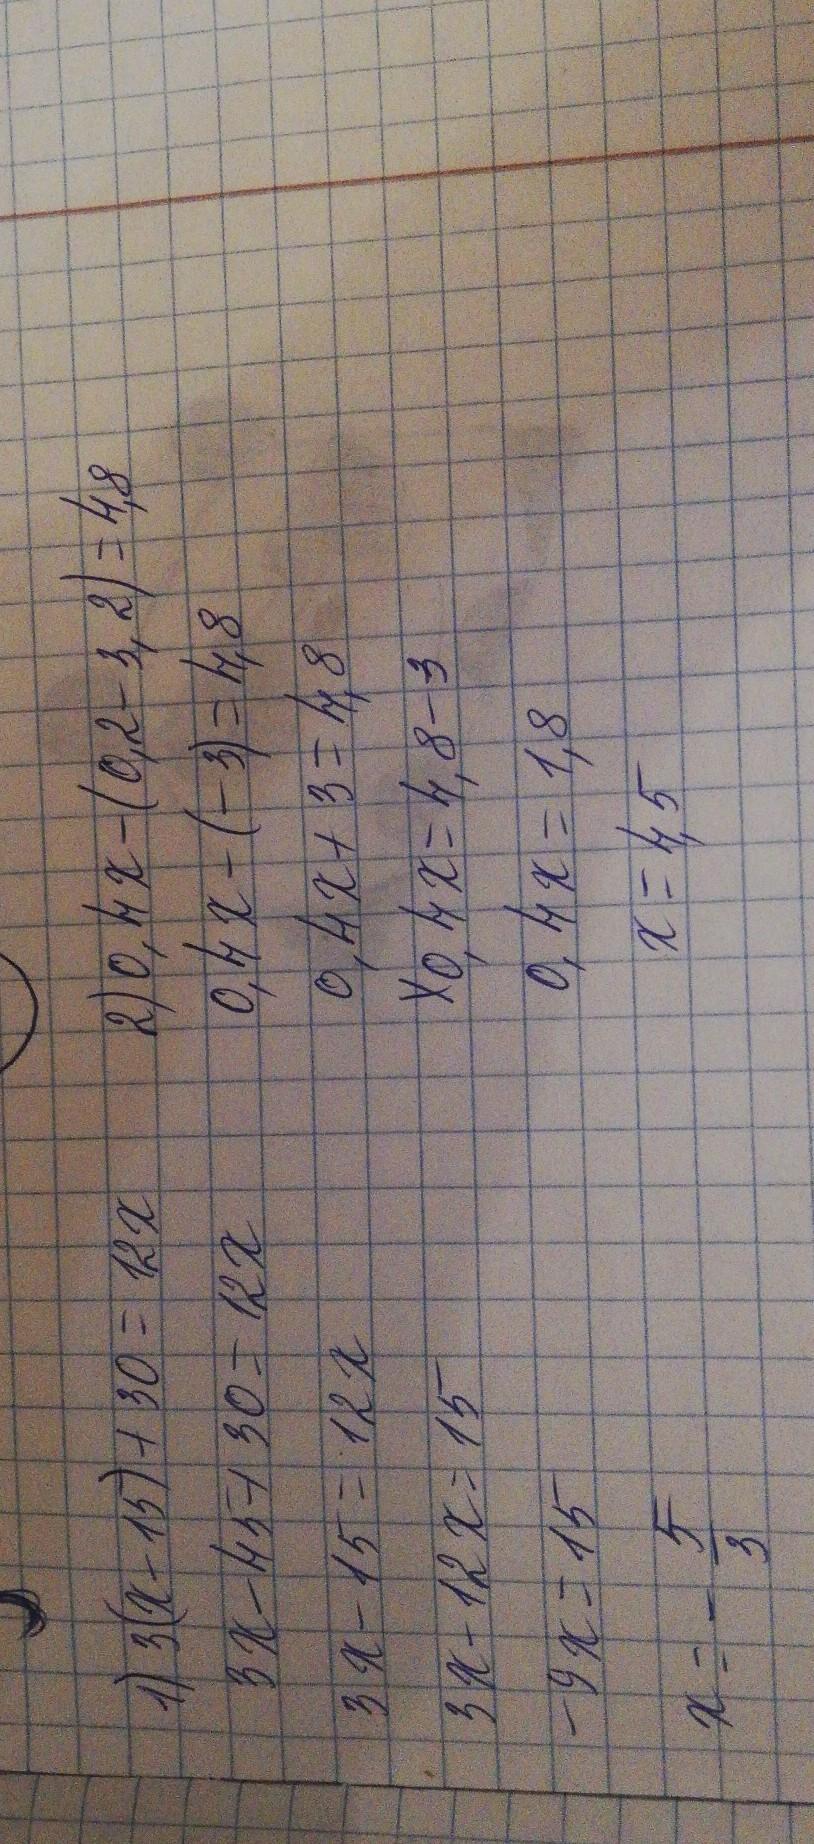 1) 3(x-15)+30=12x
3x-45+30=12x
3x-15=12x
3x-12x=15
-9x=15
x=-5/3
2) 0,4x-(0,2-3,2)=4,8
0,4x-(-3)=4,8
0,4x+3=4,8
0,4x=4,8-3
0,4x=1,8
x=4,5